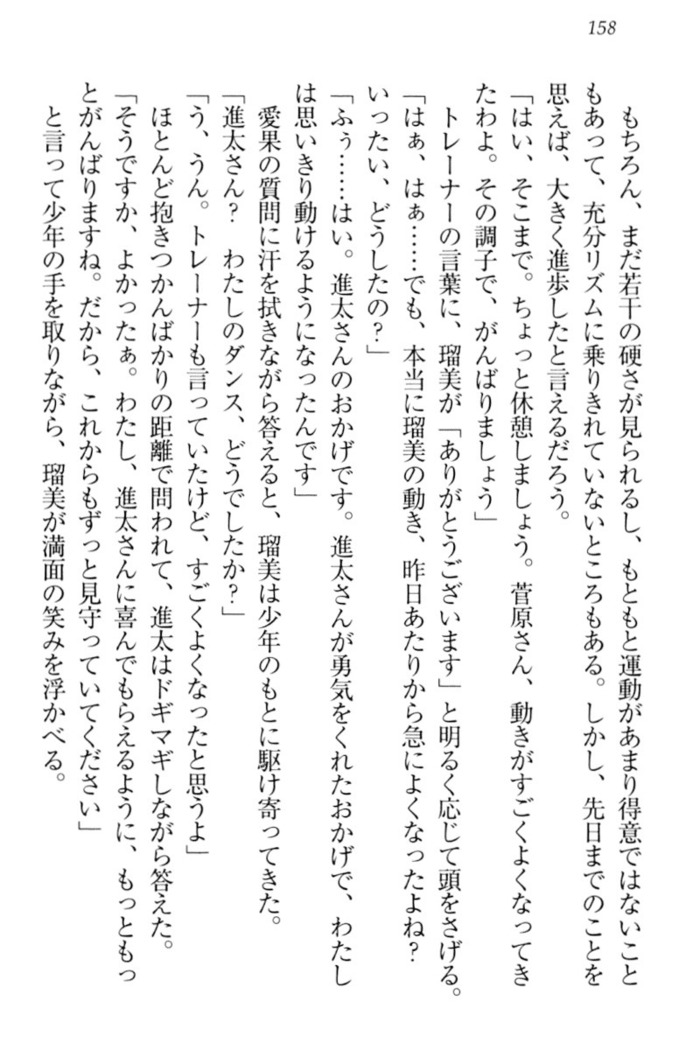 158
もちろん、まだ若干の硬さが見られるし、もともと運動があまり得意ではないこと
もあって、充分リズムに乗りきれていないところもある。しかし、先日までのことを
思えば、大きく進歩したと言えるだろう。
「はい、そこまで。ちょっと休憩しましょう。菅原さん、動きがすごくよくなってき
たわよ。その調子で、がんばりましょう」
トレーナーの言葉に、瑠美が「ありがとうございます」と明るく応じて頭をさげる。
「はぁ、はぁ……でも、本当に瑠美の動き、昨日あたりから急によくなったよね？
いったい、どうしたの？」
「ふぅ……はい。進太さんのおかげです。進太さんが勇気をくれたおかげで、わたし
は思いきり動けるようになったんです」
愛果の質問に汗を拭きながら答えると、瑠美は少年のもとに駆け寄ってきた。
「進太さん？　わたしのダンス、どうでしたか？」
「う、うん。トレーナーも言っていたけど、すごくよくなったと思うよ」
ほとんど抱きつかんばかりの距離で問われて、進太はドギマギしながら答えた。
「そうですか、よかったぁ。わたし、進太さんに喜んでもらえるように、もっともっ
とがんばりますね。だから、これからもずっと見守っていてください」
と言って少年の手を取りながら、瑠美が満面の笑みを浮かべる。